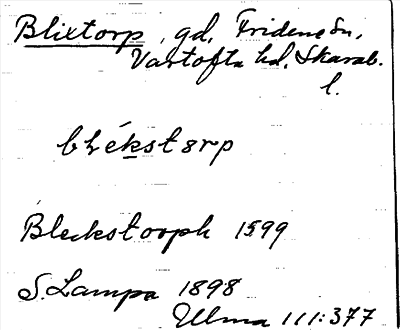 Blixtorp, gd, Fridene sn,
Vartofta hd, Skarab.
l.
blékstorp
Bleckstorph 1599
S. Lampa 1898
Ulma 111:377